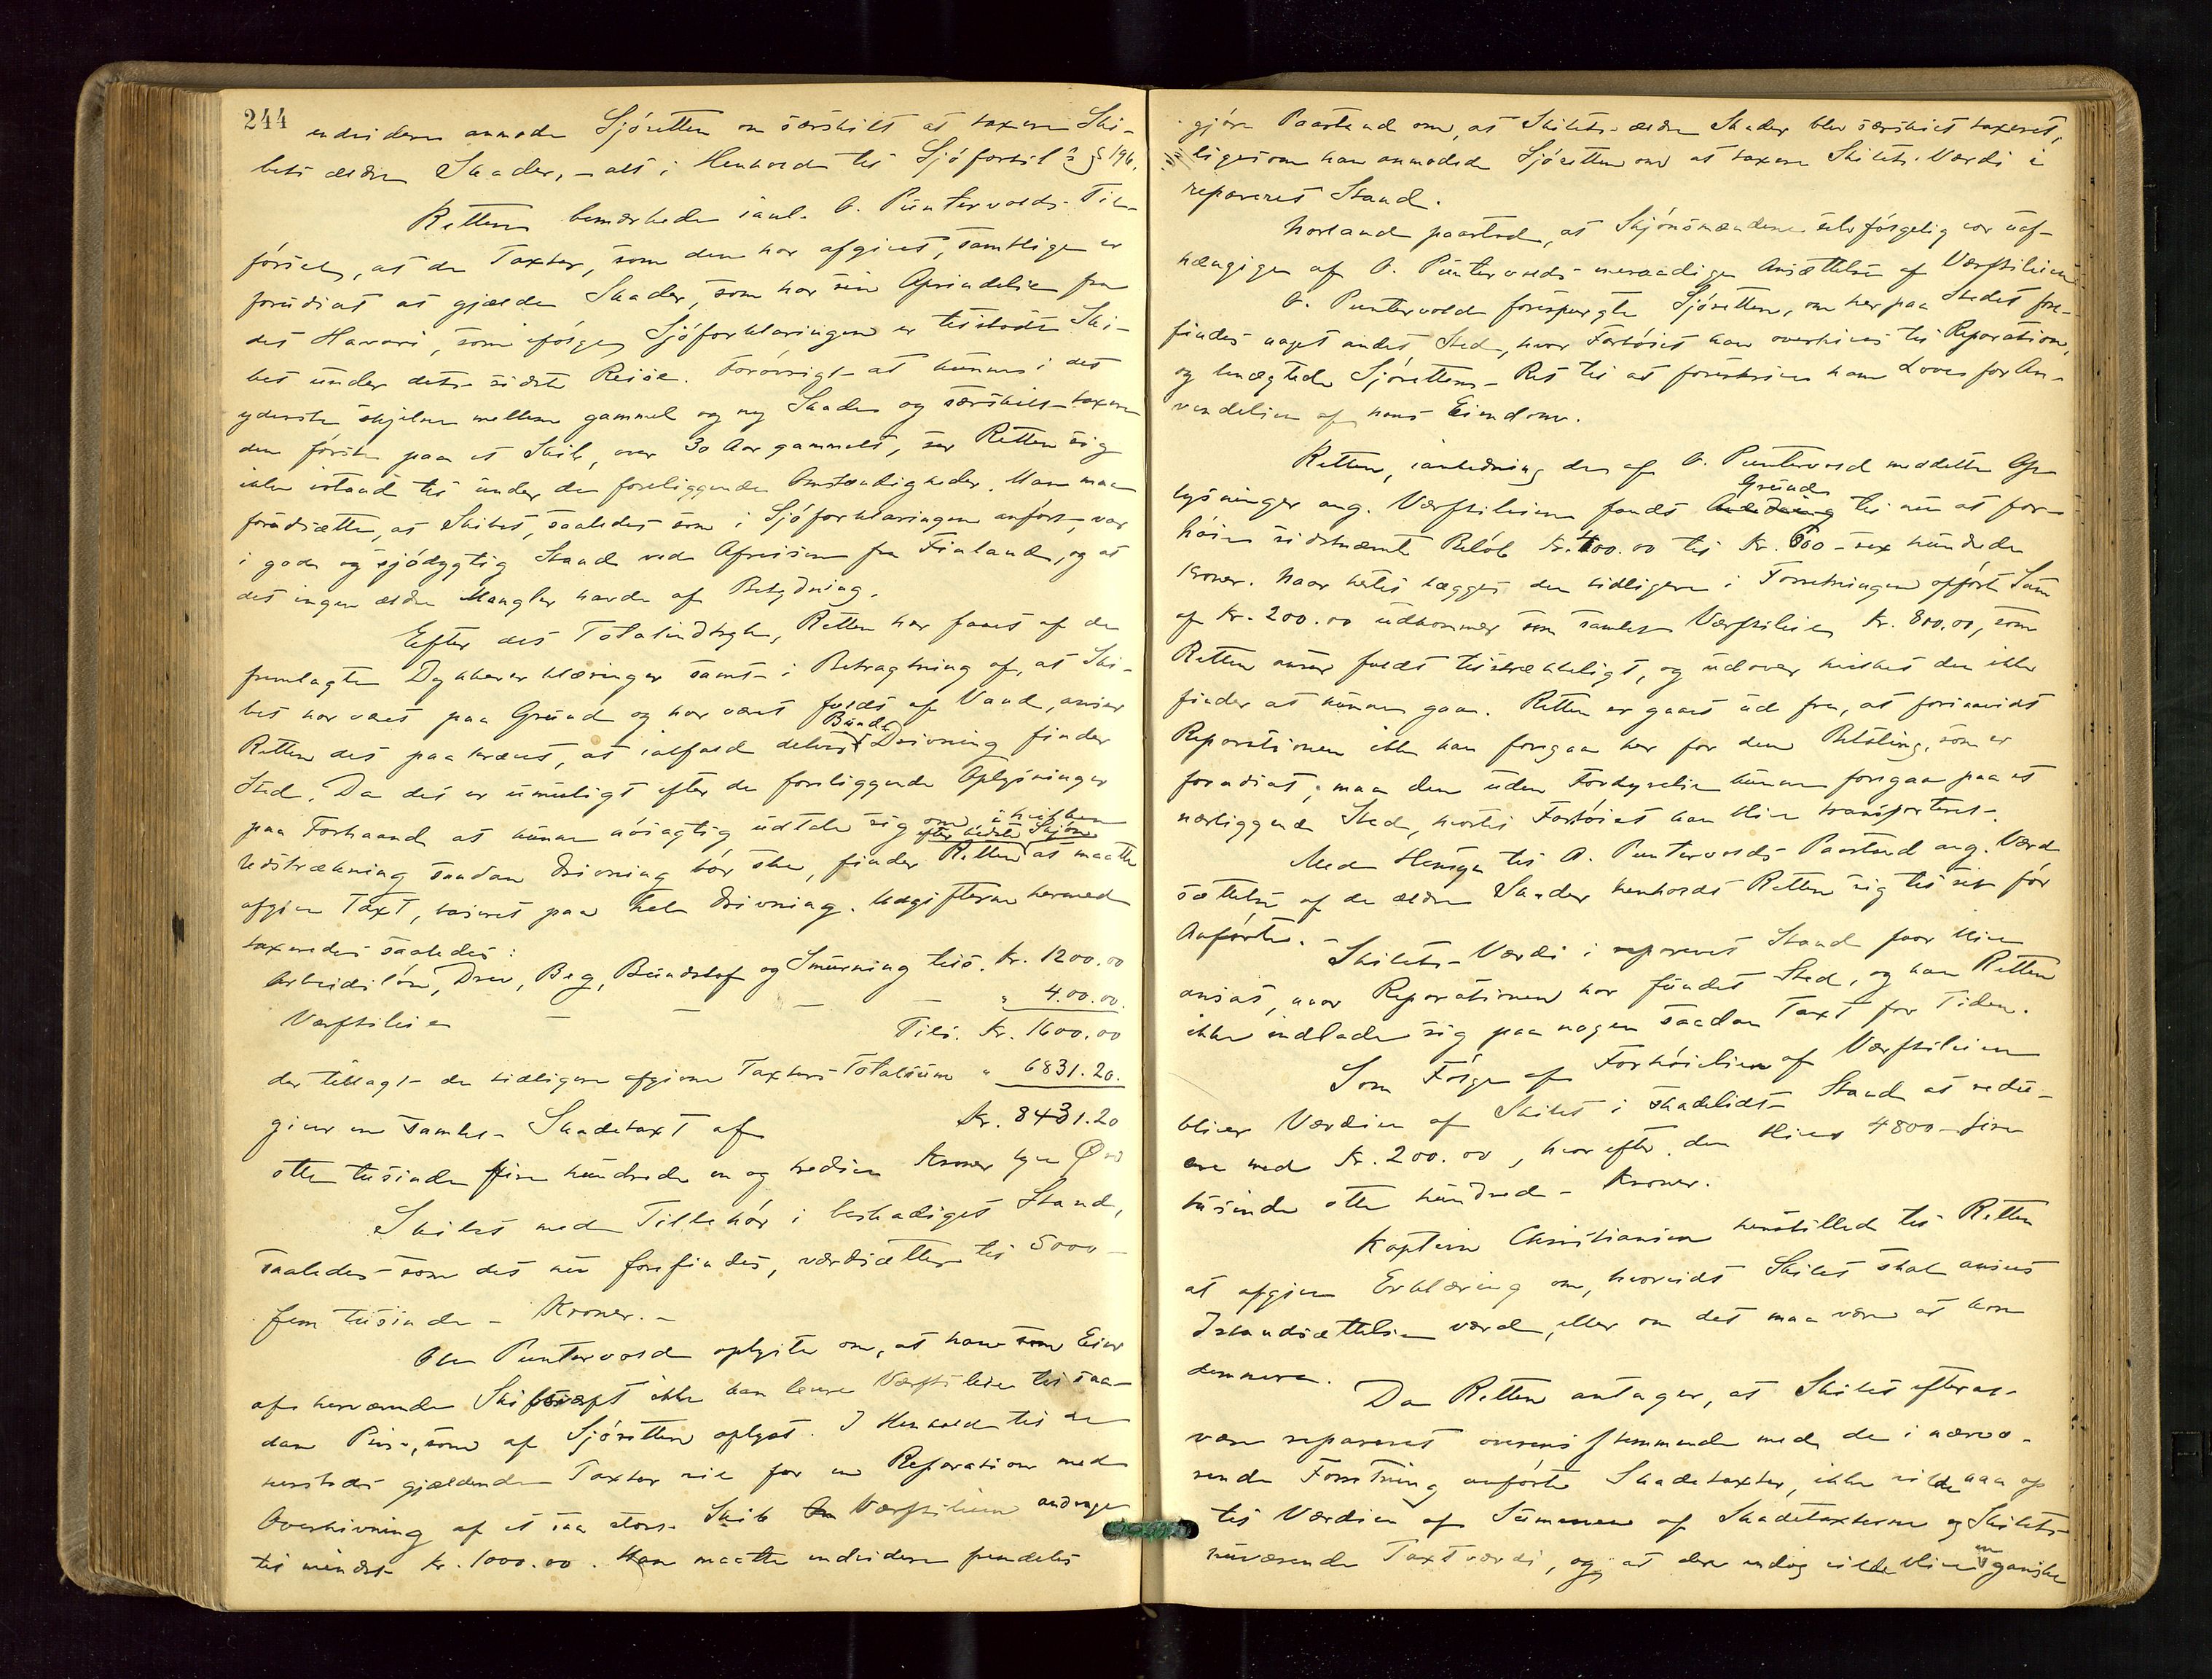 244
endvidere anmode Sjöretten om særskilt at taxere Ski-
bets ældre Skader, – alt i Henhold til Sjöfartsl's § 196.
Retten bemærkede ianl. O. Puntervolds Til-
försel, at de Taxter, som den har afgivet, samtlige er
forudsat at gjælde Skader, som har sin Oprindelse fra
det Havari, som ifölge Sjöforklaringen er tilstödt Ski-
bet under dets sidste Reise. Forövrigt at kunne i det
yderste skjelne mellem gammel og ny Skade og særskilt taxere
den förste paa et Skib, over 30 Aar gammelt, ser Retten sig
ikke istand til under de foreliggende Omstændigheder. Man maa
forudsætte, at Skibet, saaledes som i Sjöforklaringen anfört, var
i god og sjödygtig Stand ved Afreisen fra Finland, og at
det ingen ældre Mangler havde af Betydning.
Efter det Totalindtryk, Retten har faaet af de
fremlagte Dykkererklæringer samt i Betragtning af, at Ski-
bet har været paa Grund og har været fyldt af Vand, anser
Retten det paakrævet, at ialfald delvis Bund Drivning finder
Sted. Da det er umuligt efter de foreliggende Oplysninger
paa Forhaand at kunne nöiagtig udtale sig om, i hvilken
Udstrækning saadan Drivning bör ske, finder Retten efter bedste Skjön at maatte
afgive Taxt, baseret paa hel Drivning. Udgifterne hermed
taxeredes saaledes:
Arbeidslön, Drev, Beg, Bundstof og Smurning tils. Kr. 1200.00
Værftsleie – – – – " 400.00.
Tils. Kr. 1600.00
der tillagt de tidligere afgivne Taxters Totalsum " 6831.20.
giver en samlet Skadetaxt af Kr. 8431.20
otte tusinde fire hundrede en og tredive Kroner tyve Öre
Skibet med Tilbehör i beskadiget Stand,
saaledes som det nu forefindes, værdsættes til 5000 –
fem tusinde – Kroner. –
Ole Puntervold oplyste om, at han som Eier
af herværende Skibsværft ikke kan levere Værftsleie til saa-
dan Pris, som af Sjöretten oplyst. I Henhold til de
hersteds gjældende Taxter vil for en Reparation med
Overhivning af et saa stort Skib Værftsleien andrage
til mindst Kr. 1000.00. Han maatte endvidere fremdeles
gjöre Paastand om, at Skibets ældre Skader blev særskilt taxeret,
ligesom han anmodede Sjöretten om at taxere Skibets Værdi i
repareret Stand.
Norland paastod, at Skjönsmændene selvfölgelig var uaf-
hængige af O. Puntervolds Ansættelse af Værftsleien.
O. Puntervold forespurgte Sjöretten, om her paa Stedet fore-
findes noget andet Sted, hvor Fartöiet kan overhives til Reparation,
og benægtede Sjörettens Ret til at foreskrive ham Lover for An-
vendelsen af hans Eiendom.
Retten, i anledning de af O. Puntervold meddelte Op-
lysninger ang. Værftsleien fandt Grund til nu at for-
höie sidstnævnte Belöb Kr. 400.00 til Kr. 600 – sex hundrede
Kroner. Naar hertil lægges den tidligere i Forretningen opförte Sum
af Kr. 200.00 udkommer som samlet Værftsleie Kr. 800.00, som
Retten anser fuldt tilstrækkeligt, og udover hvilket den ikke
finder at kunne gaa. Retten er gaaet ud fra, at forsaavidt
Reparationen ikke kan foregaa her for den Betaling, som er
forudsat, maa den uden Fordyrelse kunne foregaa paa et
nærliggende Sted, hvortil Fartöiet kan blive transporteret.
Med Hensyn til O. Puntervolds Paastand ang. Værd-
sættelse af de ældre Skader henholdt Retten sig til det för
Anförte. – Skibets Værdi i repareret Stand faar blive
ansat, naar Reparationen har fundet Sted, og kan Retten
ikke indlade sig paa nogen saadan Taxt for Tiden.
Som Fölge af Forhöielsen af Værftsleien
bliver Værdien af Skibet i skadelidt Stand at redu-
cere med Kr. 200.00, hvorefter den bliver 4800 – fire
tusinde otte hundrede – Kroner.
Kaptein Christiansen henstillede til Retten
at afgive Erklæring om, hvorvidt Skibet skal ansees
Istandsættelse værd, eller om det maa være at kon-
demnere.
Da Retten antager, at Skibet efter at
være repareret overensstemmende med de i nærvæ-
rende Forretning anförte Skadetaxter, ikke vilde naa op
til Værdien af Summen af Skadetaxterne og Skibets
nuværende Taxtværdi, og at der endog vilde blive en ganske